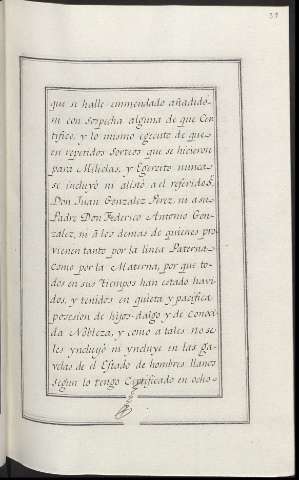 39
que se halle emmendado añadido
ni con sospecha alguna de que Cer-
tifico, y lo mismo egecuto de que
en repetidos Sorteos que se hicieron
para Milicias, y Egercito nunca
se incluyó ni alistó a el referido S.r
Don Juan Gonzalez Perez, ni a su
Padre Don Federico Antonio Gon-
zalez, ni à los demas de quienes pro-
vienen tanto por la linea Paterna
como por la Materna, por que to-
dos en sus tiempos han estado havi-
dos, y tenidos en quieta y pacifica
posesion de hijos-dalgo y de Conoci-
da Nobleza, y como a tales no se
les yncluyó ni yncluye en las ga-
velas de el Estado de hombres llanos
segun lo tengo Certificado en ocho-